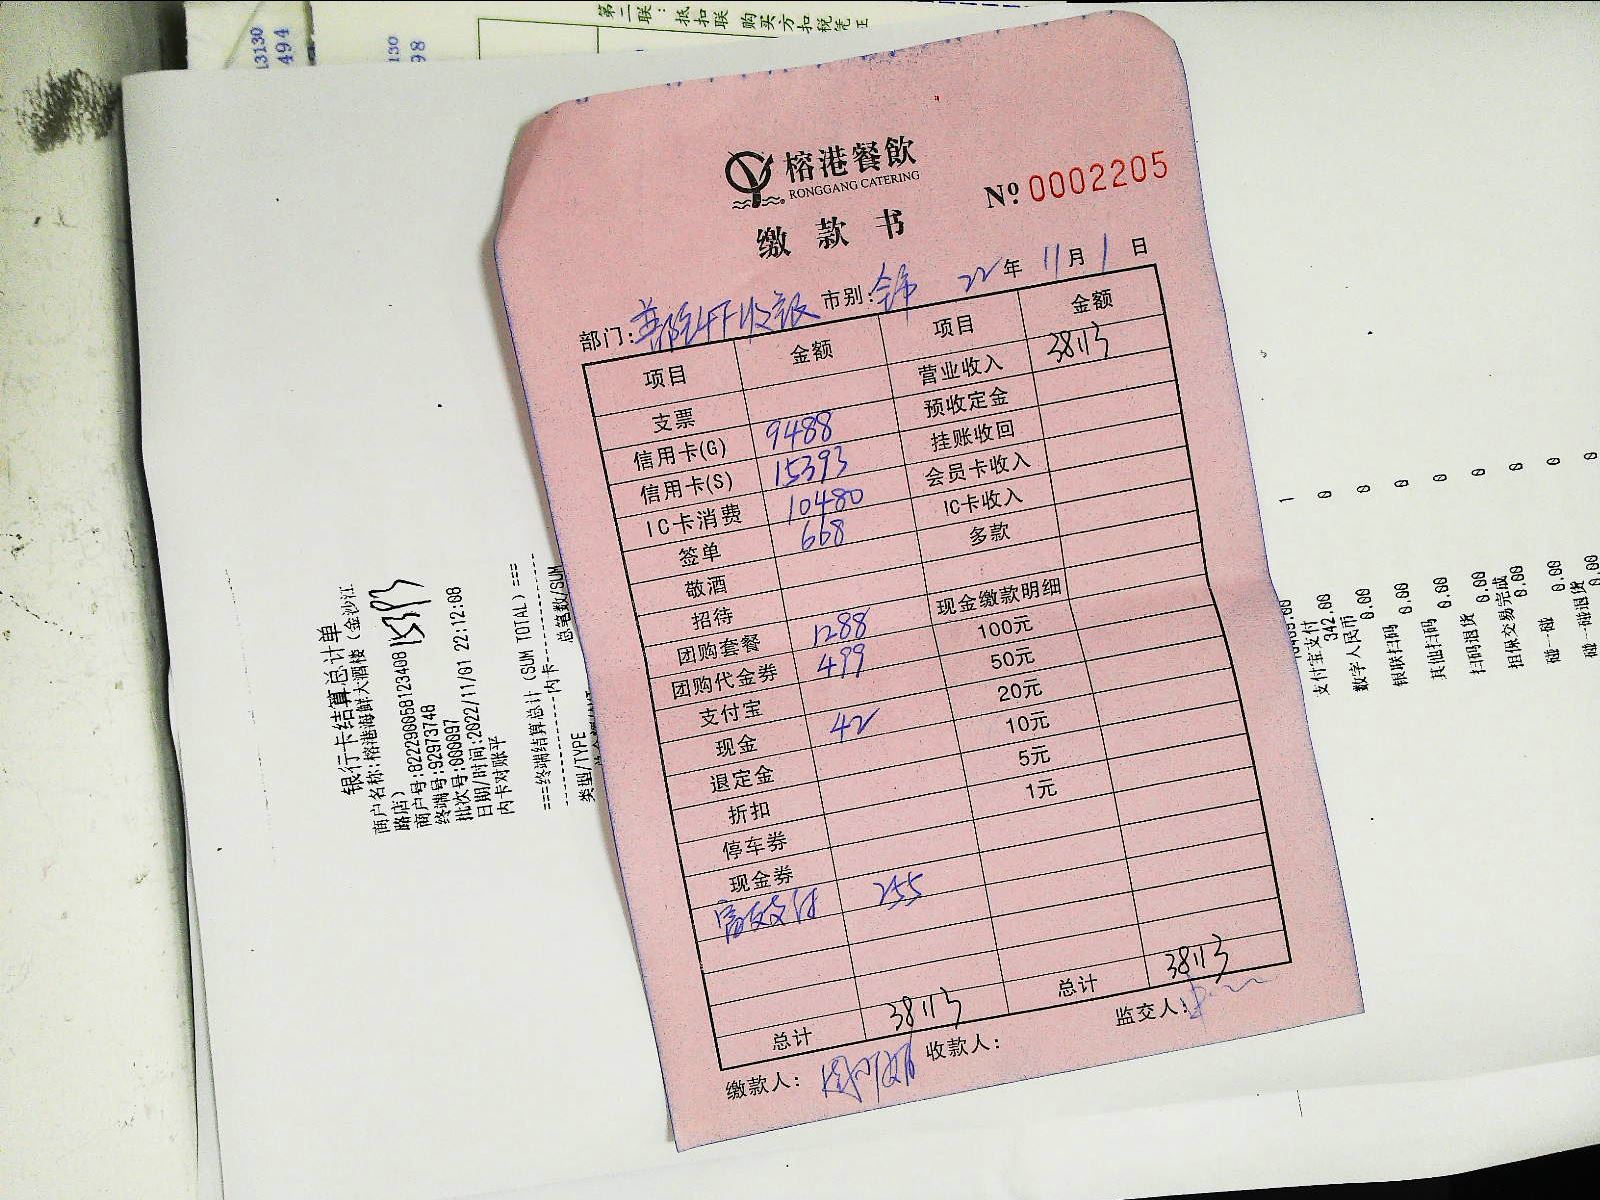 第二联：抵扣联 购买方扣税凭证
13130
494
130
98
榕港餐飲
RONGGANG CATERING
缴款书
Nº 0002205
部门: 收银 市别: 22年 11月 1日
项目 金额 项目 金额
支票 营业收入 38113
信用卡(G) 9488 预收定金
信用卡(S) 15393 挂账收回
IC卡消费 10480 会员卡收入
签单 668 IC卡收入
敬酒 多款
招待 现金缴款明细
团购套餐 1288 100元
团购代金券 499 50元
支付宝 20元
现金 42 10元
退定金 5元
折扣 1元
停车券
现金券
支付 255
总计 38113 总计 38113
缴款人: 收款人: 监交人:
银行卡结算总计单
商户名称:榕港海鲜大酒楼（金沙江
路店）
商户号:822290058123408 15393
终端号:92973748
批次号:000097
日期/时间:2022/11/01 22:12:08
内卡对账平
===终端结算总计(SUM TOTAL)===
内卡
类型/TYPE 总笔数/SUM
1
支付宝支付 0
342.00
数字人民币 0
0.00
银联扫码 0
0.00
其他扫码 0
0.00
扫码退货 0
0.00
担保交易完成 0
0.00
碰一碰 0
0.00
碰一碰退货 0
0.00